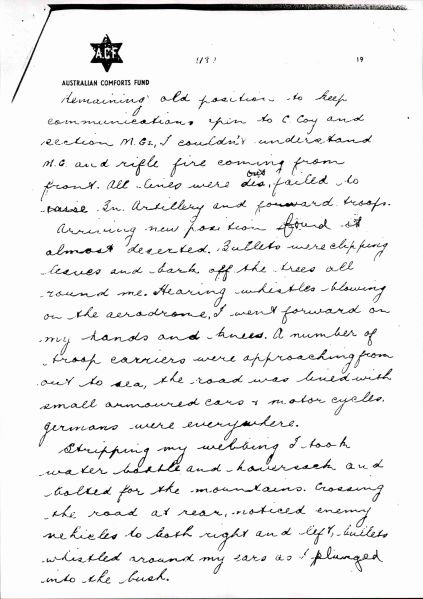 ACF
(13)
19
AUSTRALIAN COMFORTS FUND
remaining old position to keep
communications open to C Coy and
section M.Gs, I couldn't understand
M.G. and rifle fire coming from
front. All lines were dis, out, failed to
raise Bn. Artillery and forward troops.
Arriving new position found it
almost deserted. Bullets were clipping
leaves and bark off the trees all
round me. Hearing whistles blowing
on the aerodrome, I went forward on
my hands and knees. A number of
troop carriers were approaching from
out to sea, the road was lined with
small armoured cars & motor cycles.
Germans were everywhere.
Stripping my webbing I took
water bottle and haversack and
bolted for the mountains. Crossing
the road at rear, noticed enemy
vehicles to both right and left, bullets
whistled around my ears as I plunged
into the bush.